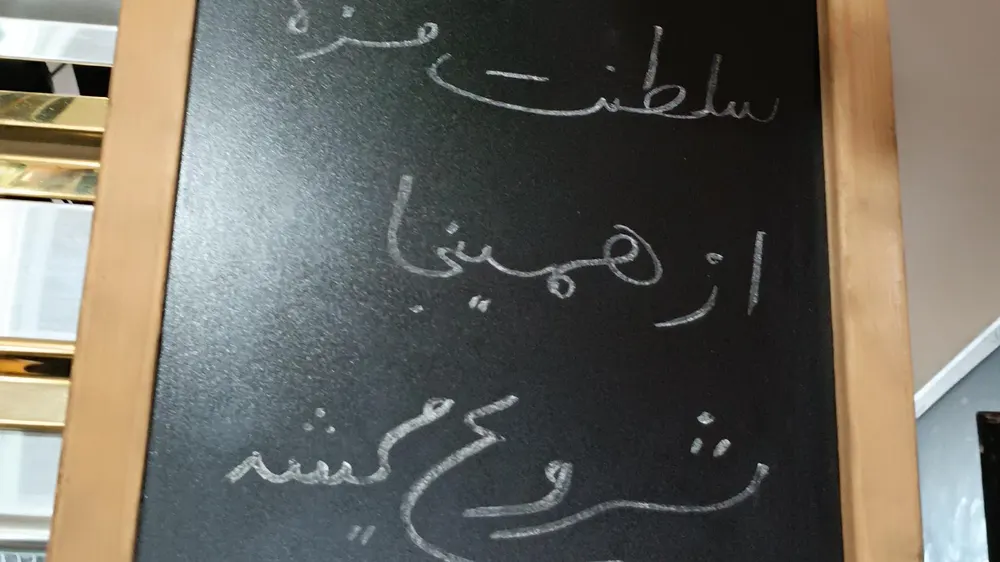 سلطنت مزه
از همینجا
شروع میشه